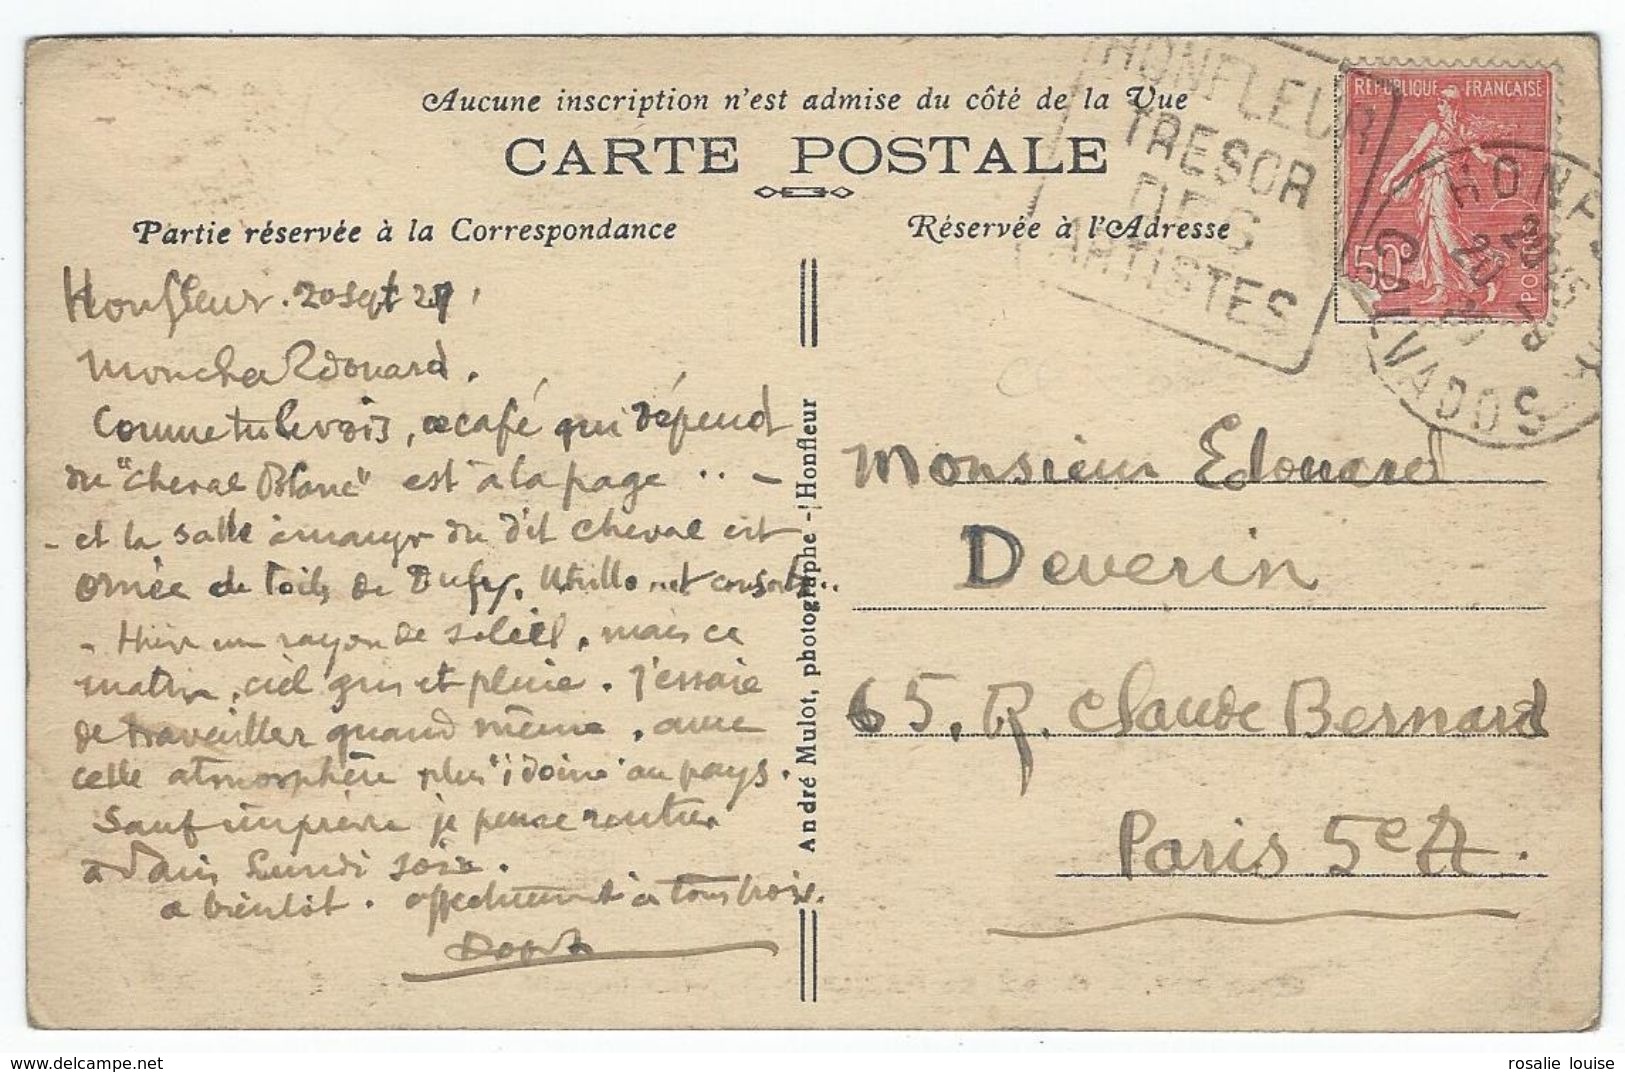 Aucune inscription n'est admise du côté de la Vue
CARTE POSTALE
Partie réservée à la Correspondance
Réservée à l'Adresse
HONFLEUR
TRESOR
DES
ARTISTES
REPUBLIQUE FRANÇAISE
50c
POSTES
HONFLEUR
CALVADOS
20
Honfleur. 20 sept 27
Mon cher Edouard.
Comme tu le vois, ce café qui dépend
du "Cheval Blanc" est à la page .. -
- et la salle à manger du dit Cheval est
ornée de toiles de Dufy, Utrillo et consorts..
- Hier un rayon de soleil, mais ce
matin, ciel gris et pluie. J'essaie
de travailler quand même, avec
cette atmosphère plus "idoine" au pays.
Sauf imprévu je pense rentrer
à Paris Lundi soir.
a bientôt. affectueusement à tous trois.
André Mulot, photographe - Honfleur
Monsieur Edouard
Deverin
65, R. Claude Bernard
Paris 5e A.
rosalie louise